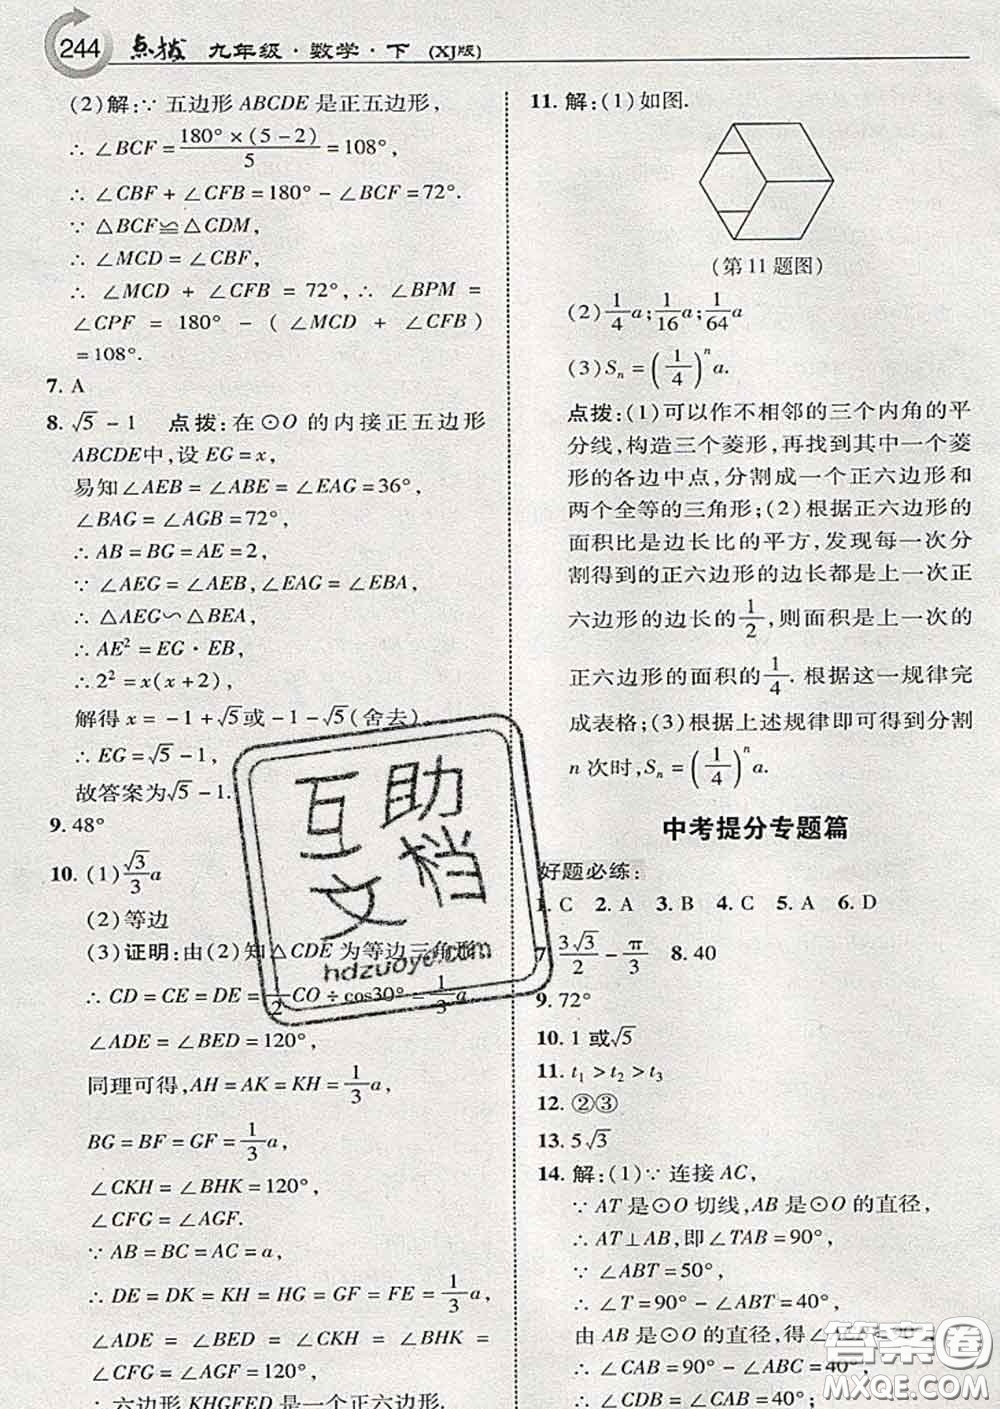 244 点拨 九年级·数学·下 (XJ版)
(2)解:∵ 五边形 ABCDE 是正五边形,
∴ ∠BCF = \frac{180° × (5 - 2)}{5} = 108°,
∴ ∠CBF + ∠CFB = 180° - ∠BCF = 72°.
∵ △BCF≌△CDM,
∴ ∠MCD = ∠CBF,
∴ ∠MCD + ∠CFB = 72°, ∴ ∠BPM =
∠CPF = 180° - ( ∠MCD + ∠CFB)
= 108°.
7. A
8. √5 - 1 点拨:在⊙O 的内接正五边形
ABCDE中,设 EG = x,
易知 ∠AEB = ∠ABE = ∠EAG = 36°,
∠BAG = ∠AGB = 72°,
∴ AB = BG = AE = 2,
∵ ∠AEG = ∠AEB, ∠EAG = ∠EBA,
∴ △AEG∽△BEA,
∴ AE² = EG · EB,
∴ 2² = x(x + 2),
解得 x = -1 + √5或 -1 - √5(舍去).
∴ EG = √5 - 1,
故答案为√5 - 1.
9. 48°
10. (1) \frac{√3}{3}a
(2)等边
(3)证明:由(2)知△CDE 为等边三角形,
∴ CD = CE = DE = \frac{1}{2}CO ÷ cos30° = \frac{1}{3}a,
∠ADE = ∠BED = 120°,
同理可得, AH = AK = KH = \frac{1}{3}a,
BG = BF = GF = \frac{1}{3}a,
∠CKH = ∠BHK = 120°,
∠CFG = ∠AGF.
∵ AB = BC = AC = a,
∴ DE = DK = KH = HG = GF = FE = \frac{1}{3}a,
∠ADE = ∠BED = ∠CKH = ∠BHK =
∠CFG = ∠AGF = 120°,
∴ 六边形 KHGFED 是一个正六边形.
11. 解:(1)如图.
(第11题图)
(2) \frac{1}{4}a; \frac{1}{16}a; \frac{1}{64}a
(3) Sₙ = (\frac{1}{4})ⁿ a.
点拨:(1)可以作不相邻的三个内角的平
分线,构造三个菱形,再找到其中一个菱
形的各边中点,分割成一个正六边形和
两个全等的三角形;(2)根据正六边形的
面积比是边长比的平方,发现每一次分
割得到的正六边形的边长都是上一次正
六边形的边长的\frac{1}{2},则面积是上一次的
正六边形的面积的\frac{1}{4}. 根据这一规律完
成表格;(3)根据上述规律即可得到分割
n 次时, Sₙ = (\frac{1}{4})ⁿ a.
中考提分专题篇
好题必练:
1. C 2. A 3. B 4. C 5. A 6. D
7. \frac{3√3}{2} - \frac{π}{3} 8. 40
9. 72°
10. 1 或√5
11. t₁ > t₂ > t₃
12. ②③
13. 5√3
14. 解:(1)∵ 连接 AC,
∵ AT 是⊙O 切线, AB 是⊙O 的直径,
∴ AT⊥AB,即∠TAB = 90°,
∵ ∠ABT = 50°,
∴ ∠T = 90° - ∠ABT = 40°,
由 AB 是⊙O 的直径,得∠ACB = 90°,
∴ ∠CAB = 90° - ∠ABC = 40°,
∴ ∠CDB = ∠CAB = 40°;
互助
文档
hdzuoye.com
答案圈
MXQE.COM